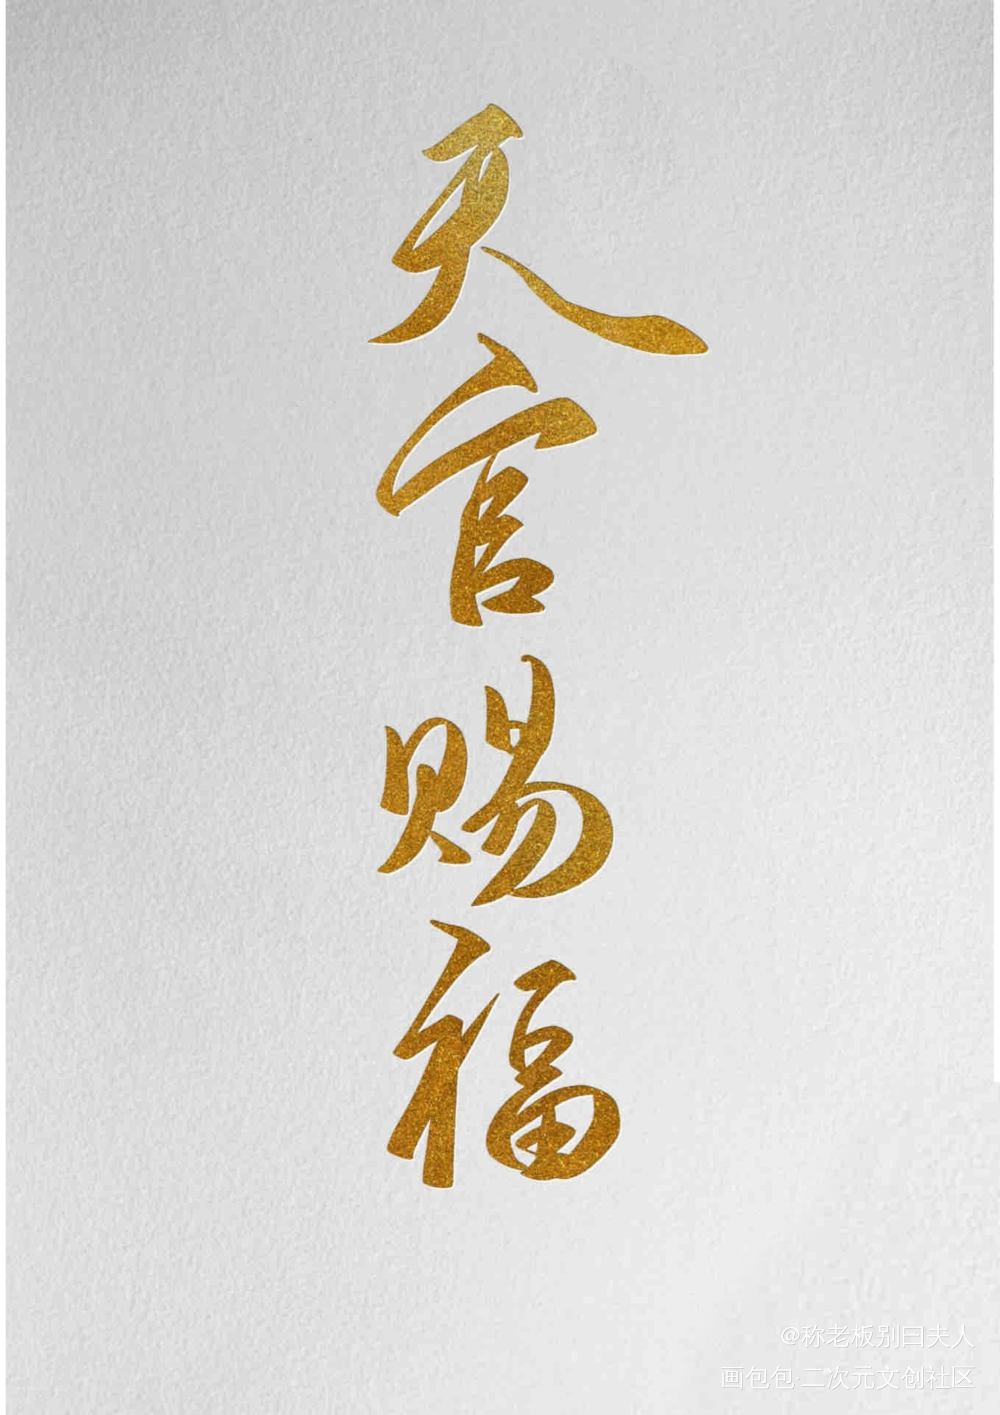 天官赐福
@称老板别曰夫人
画包包·二次元文创社区